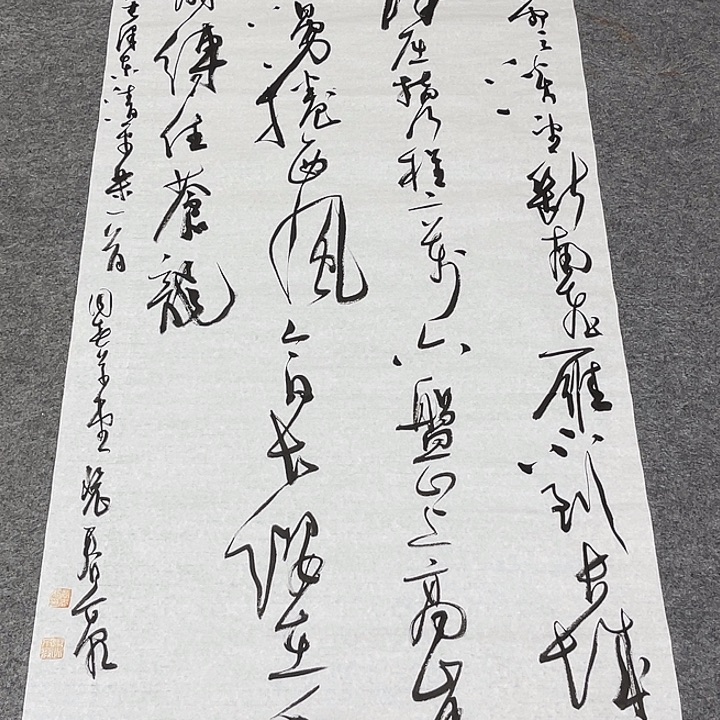 雲淡望斷南飛雁不到長城
漢屈指行程二萬六盤山上高峰
漫捲西風今日長纓在手
時縛住蒼龍
澤東清平樂一首